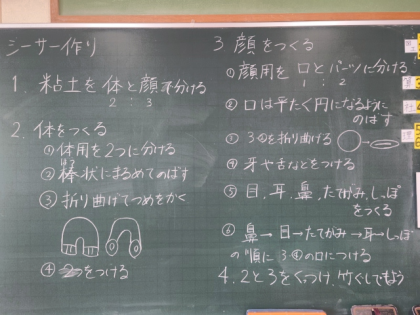 シーサー作り
1. 粘土を体と顔で分ける
2 : 3
2. 体をつくる
①体用を2つに分ける
②棒状にまるめてのばす
③折り曲げてつめをかく
④をつける
3. 顔をつくる
①顔用を口とパーツに分ける
1 : 2
②口は平たく円になるように
のばす
③を折り曲げる
④牙や舌などをつける
⑤目、耳、鼻、たてがみ、しっぽ
をつくる
⑥鼻→目→たてがみ→耳→しっぽ
の順に3④の口につける
4. 2と3をくっつけ、